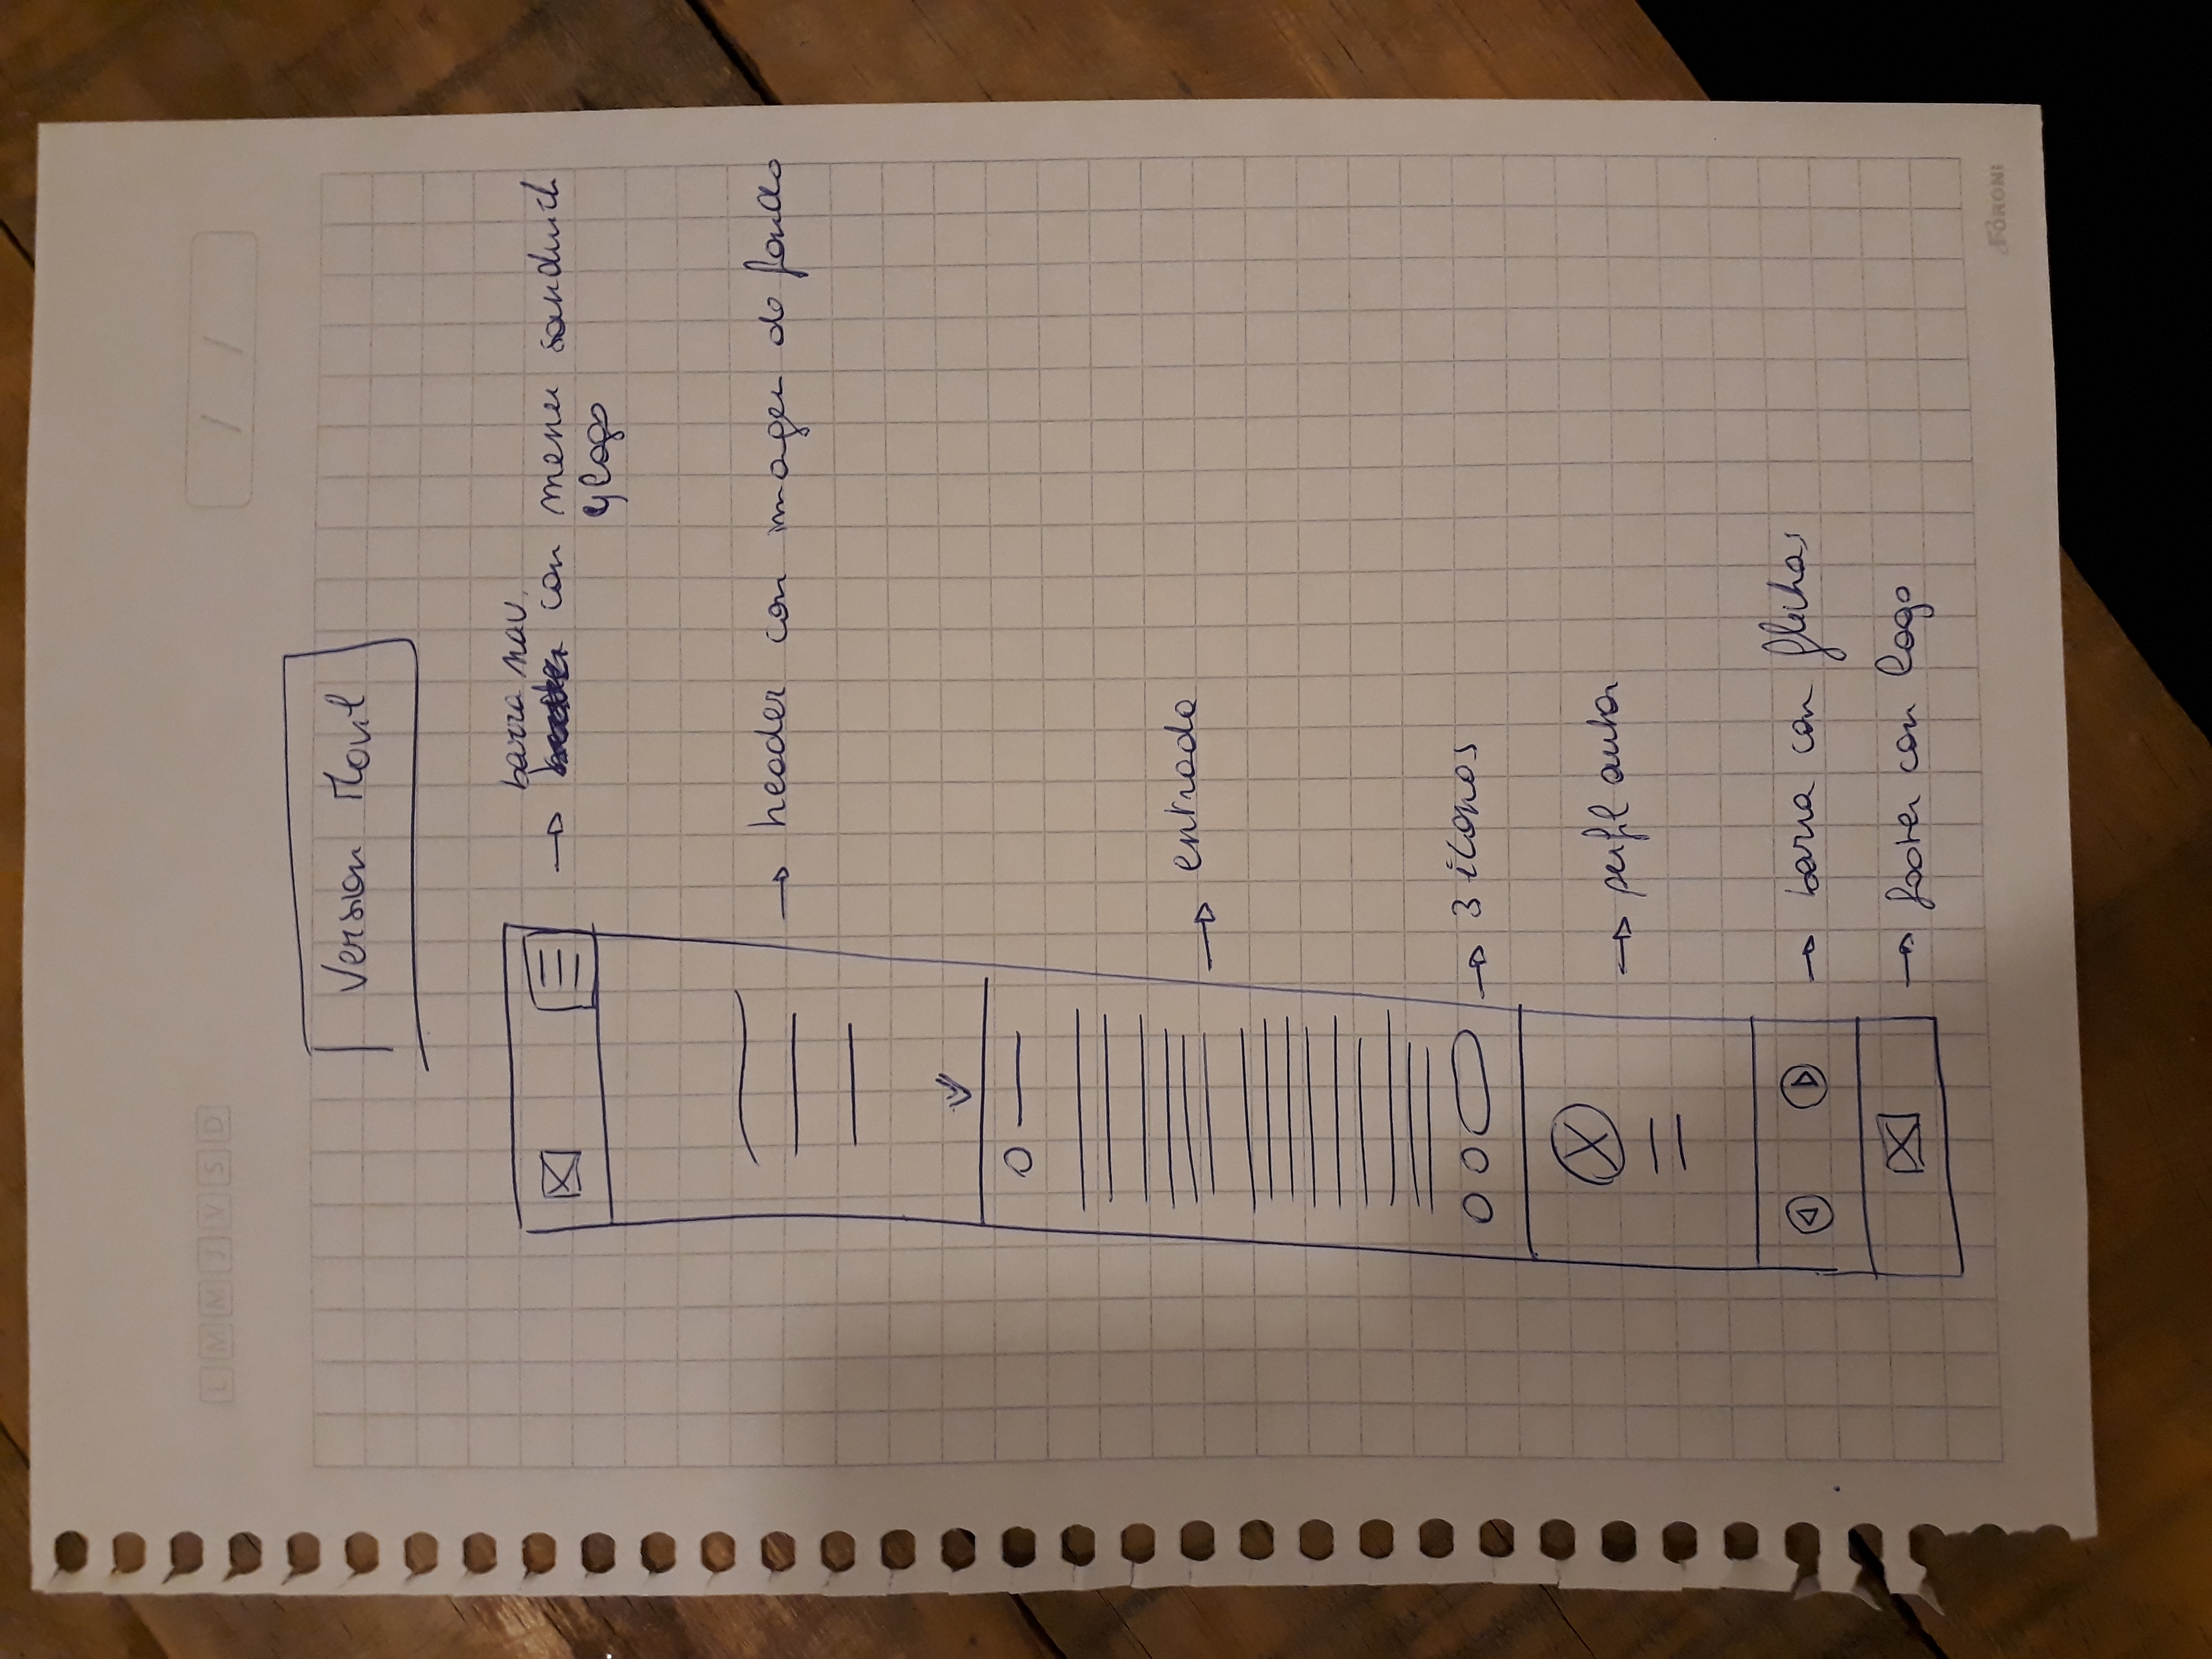 L M M J V S D
/ /
Version Movil
barra nav.
con menu sandwich
y logo
header con imagen de fondo
entrada
3 iconos
perfil autor
barra con flechas
footer con logo
FORONI